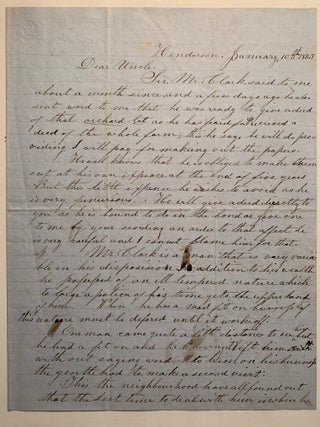 Henderson January 10th 1853
Dear Uncle
Sir Mr. Clark said to me
about a month since and a few days ago he also
sent word to me that he was ready to give a deed
of that orchard lot as he has paid & received a
deed of the whole farm; this he says he will do pro
viding I will pay for making out the papers.
He well knows that he is obliged to make them
out at his own expence at the end of five years
But this little expence he wishes to avoid as he
is very penurious. He will give a deed directly to
you as he is bound to do in the bond or give one
to me by your sending an order to that affect he
is very careful and I cannot blame him for that.
Mr Clark is a man that is very varia
ble in his disposession In addition to his wealth
he possessed of an ill tempered nature which
to large a portion of his time gets the upper hand
of him. When he has a real fit on him of
this nature must be defered until it works off.
One man came quite a distance to see him but
he had a fit on and he
with out saying word to him on his business
the gentle had to make a second visit.
This the neighbourhood have all found out
that the best time to deal with him is when he